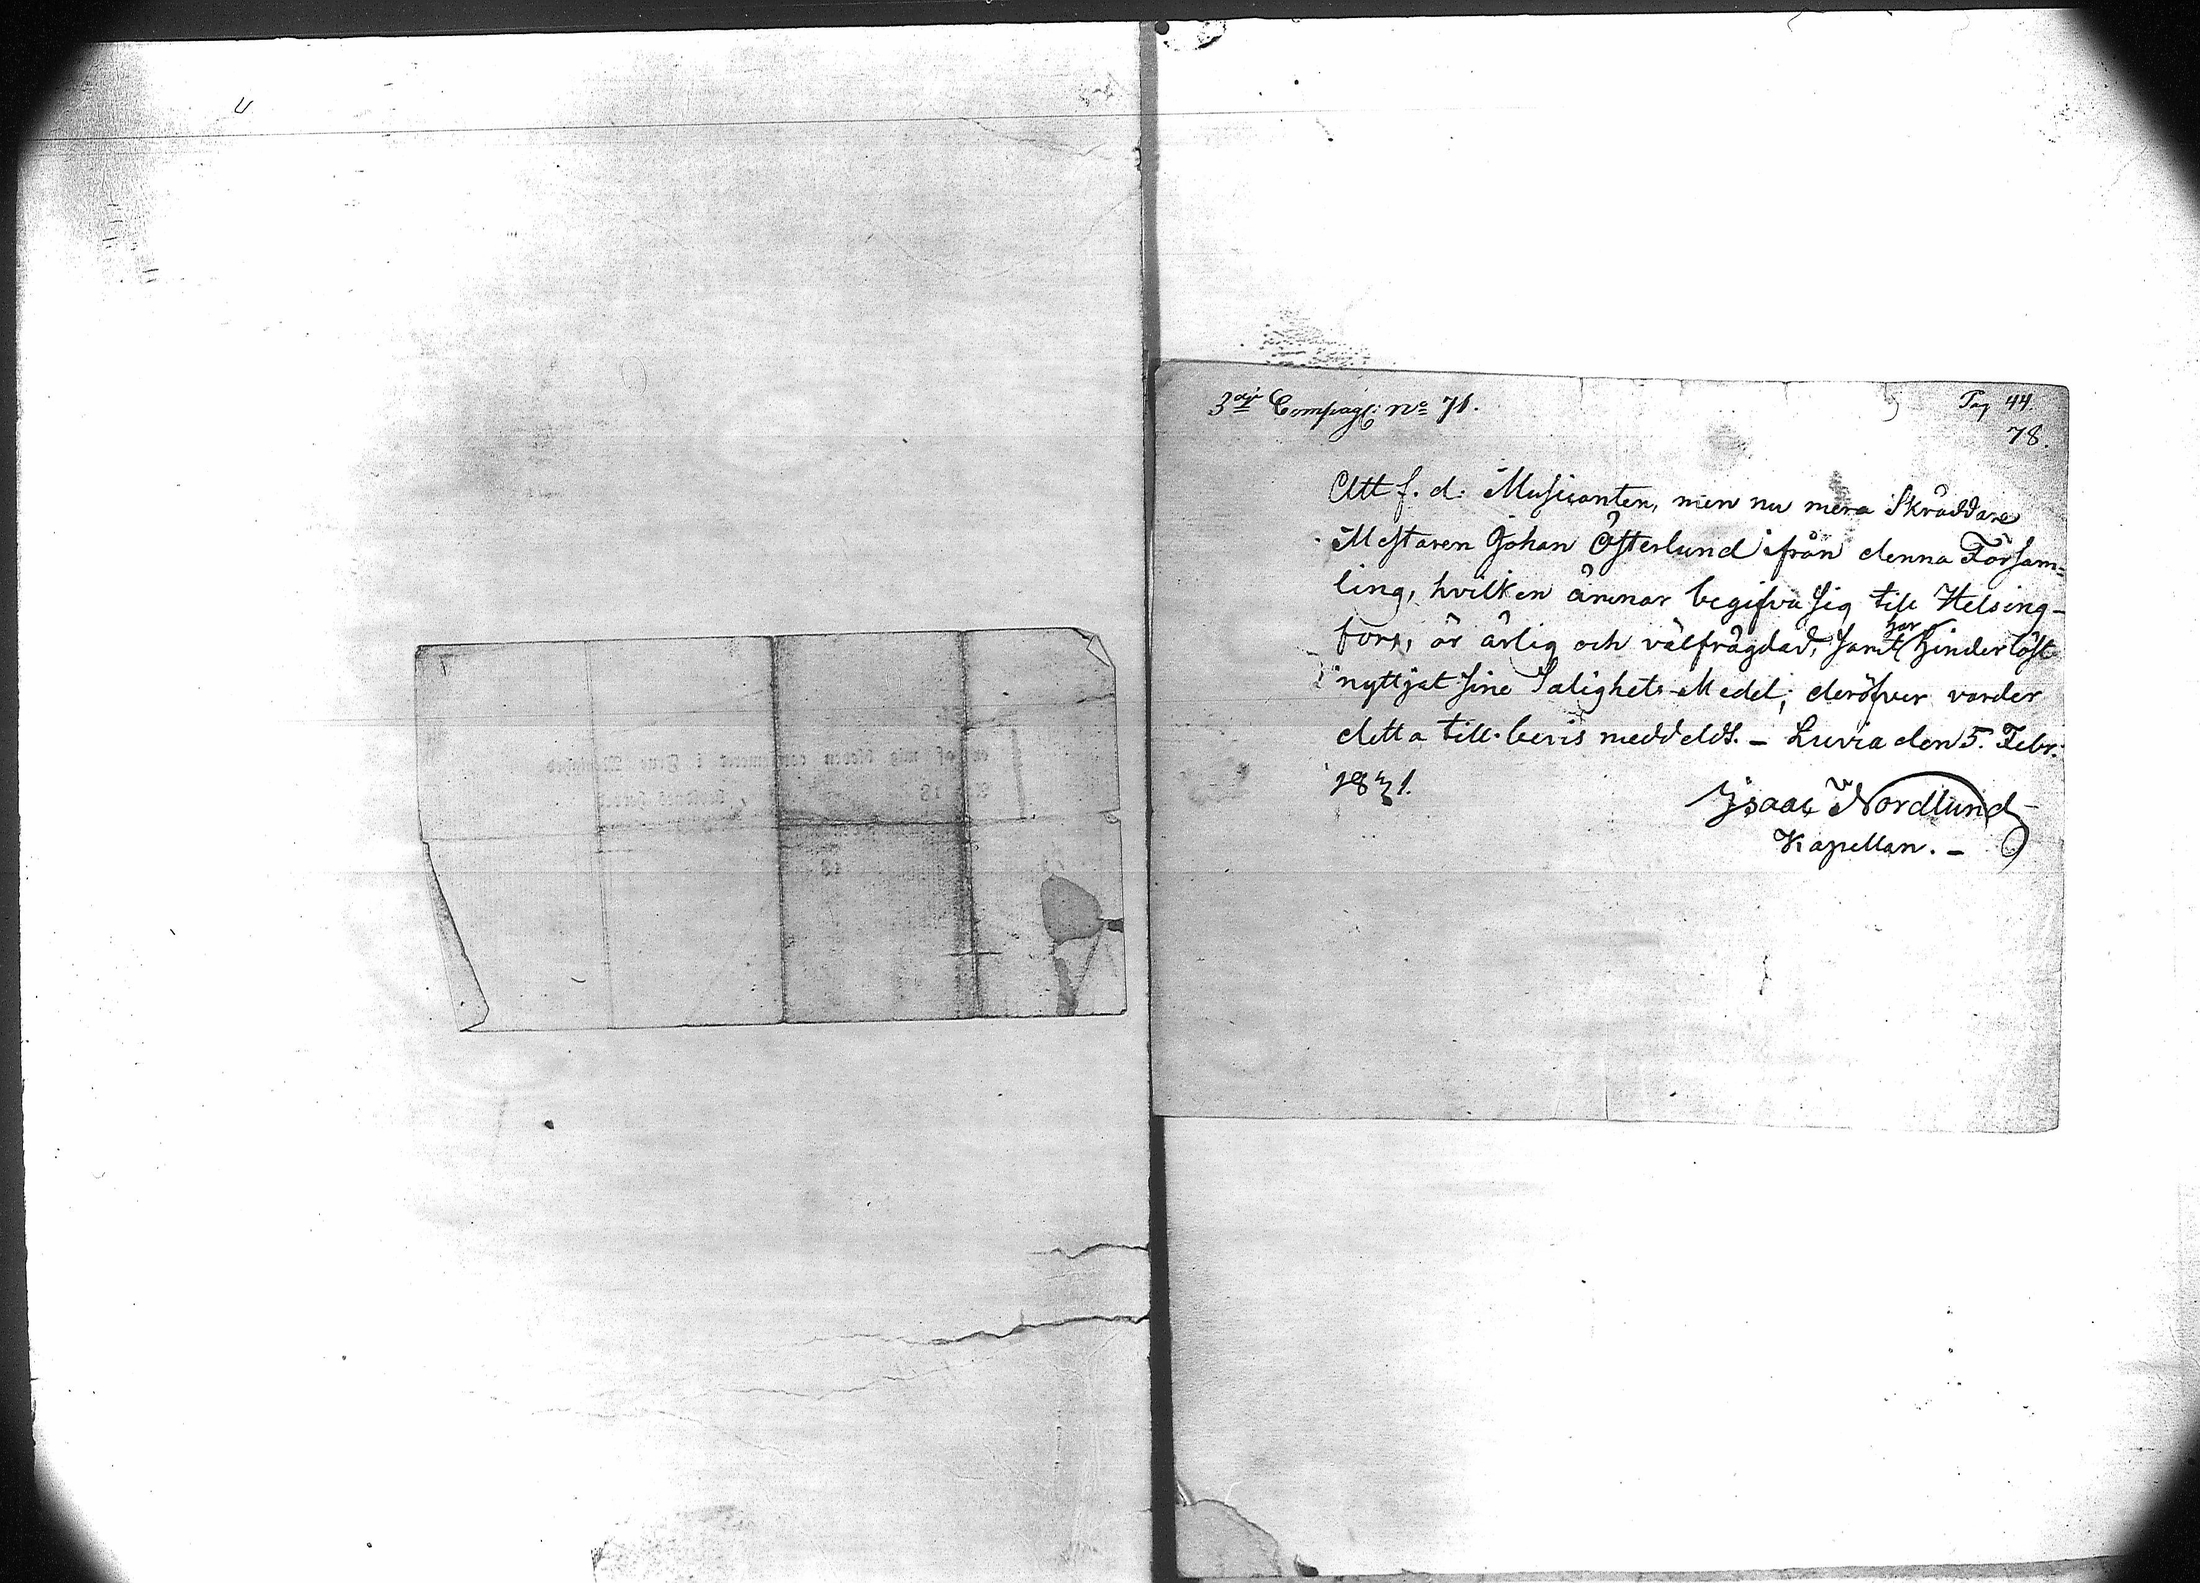 3dje Compagt: No 71.
Pag 44.
78.
Att f. d. Musicanten, men nu mera Skräddare
Mestaren Johan Österlund ifrån denna Försam=
ling, hvilken ämnar begifva sig till Helsing-
fors, är ärlig och välfrägdad, samt har hinderlöst
nyttjat sine Salighets-Medel; deröfver varder
detta till bevis meddeldt. – Luvia den 5. Febr:
1831.
Isaac Nordlund
Kapellan. –